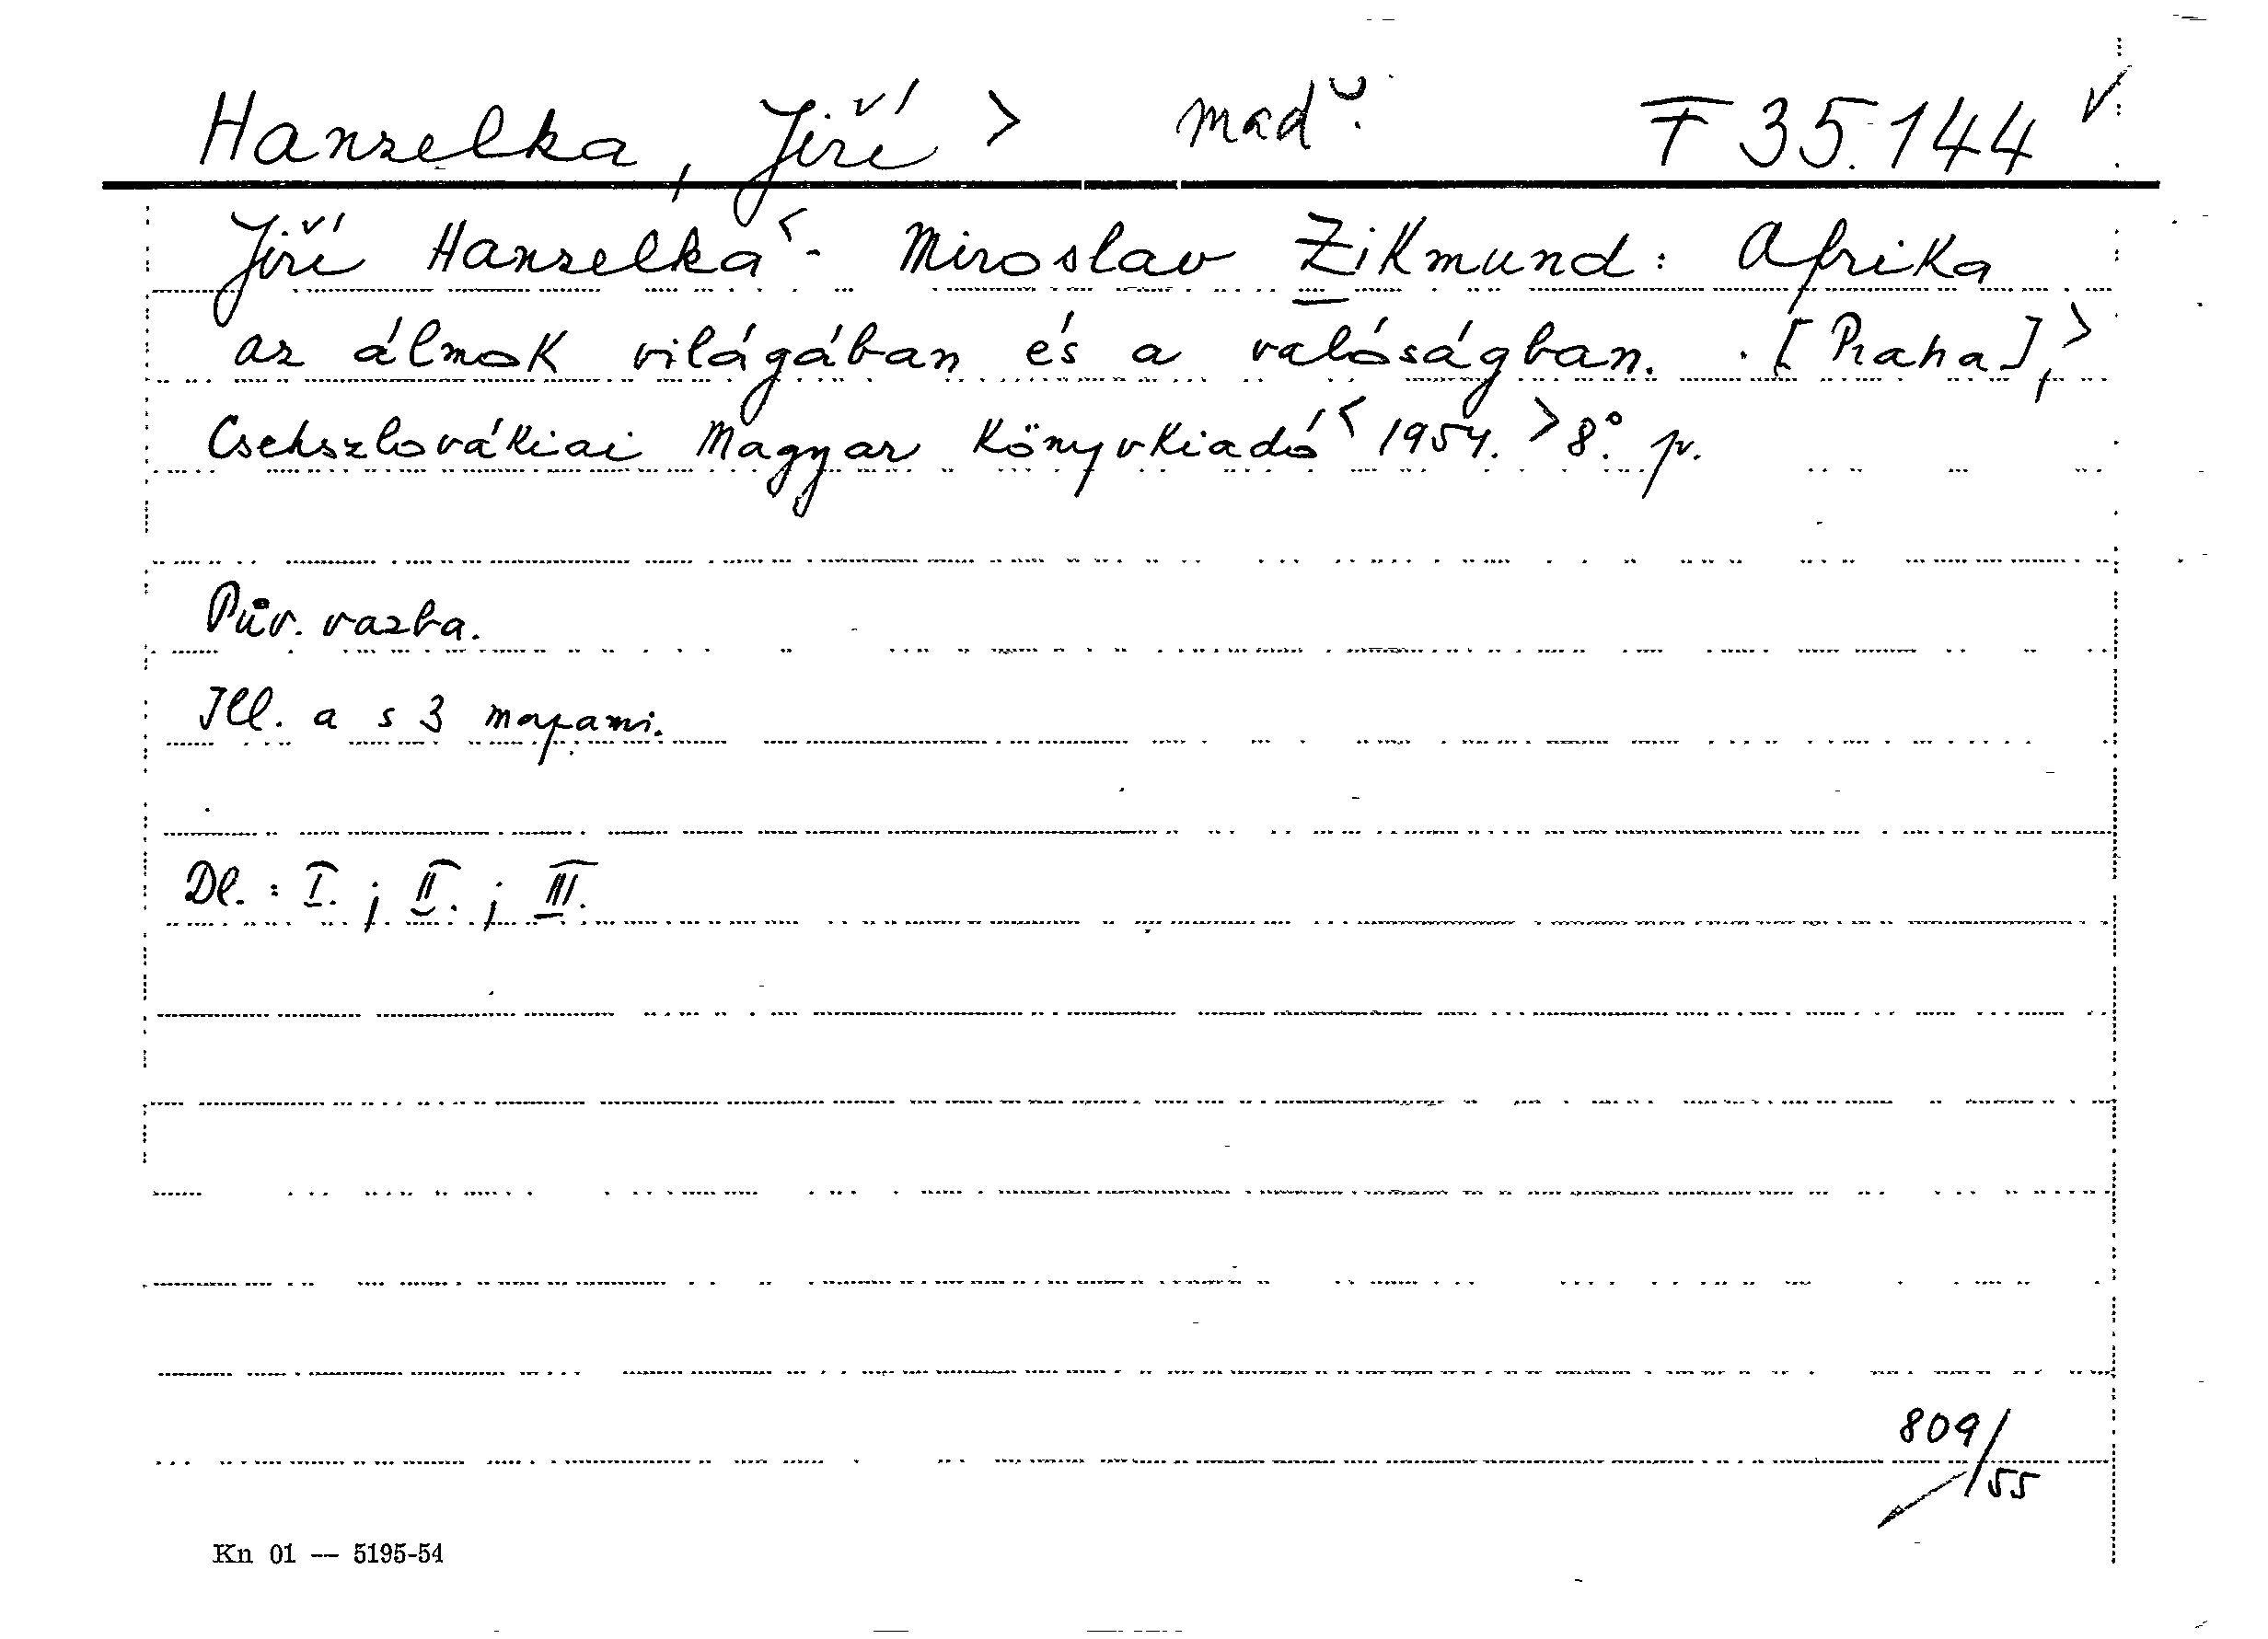 Hanzelka, Jiří > maď. F 35.144 v.
Jiří Hanzelka < - Miroslav Zikmund: Afrika
az álmok világában és a valóságban. [Praha], >
Csehszlovákiai Magyar Könyvkiadó < 1954. > 8°. pv.
Pův. vazba.
Ill. a s 3 mapami.
Dl.: I.; II.; III.
809/55
Kn 01 — 5195-54